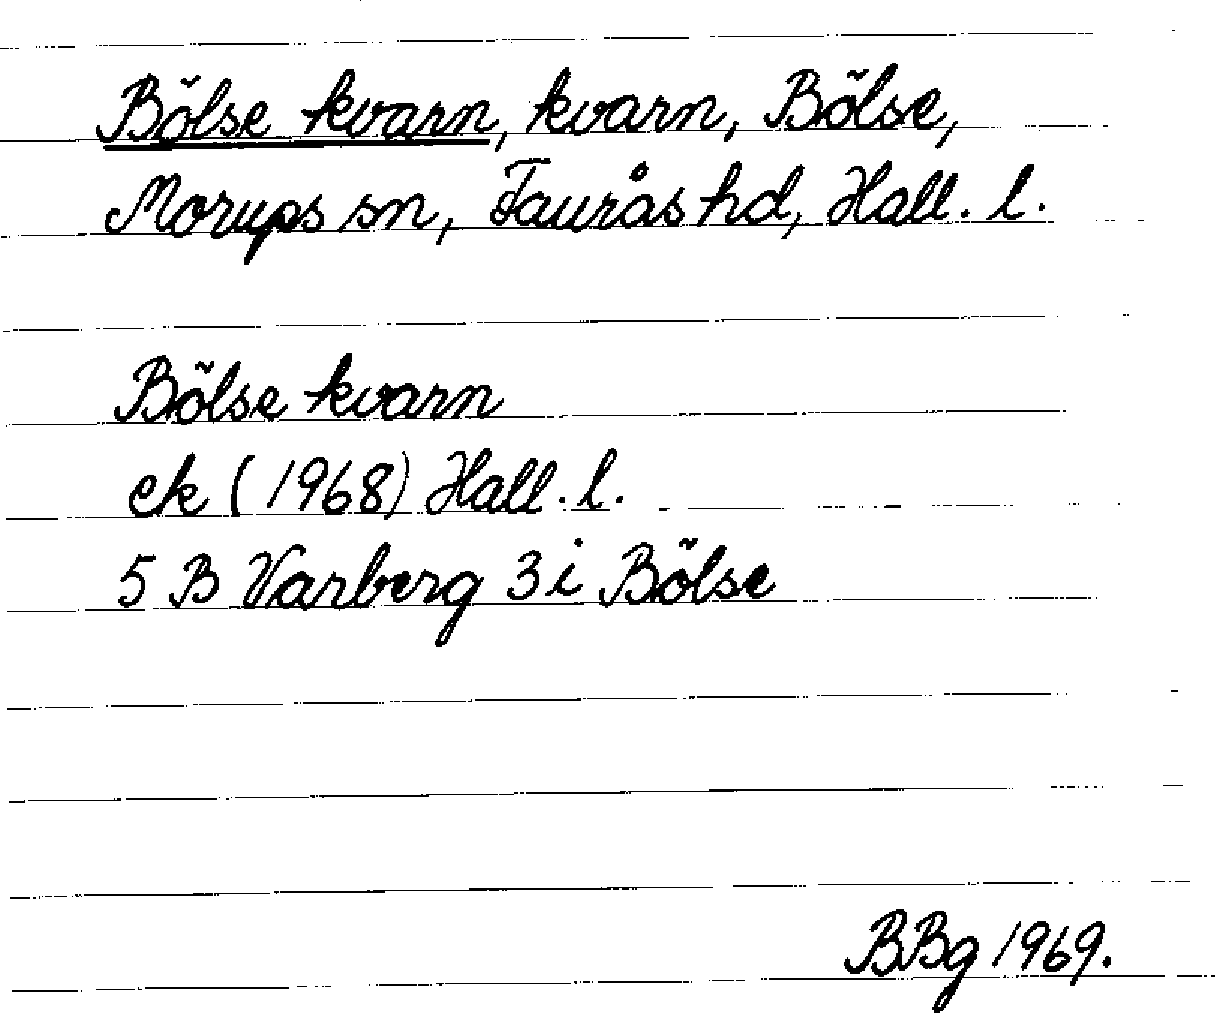 Bölse kvarn, kvarn, Bölse,
Morups sn, Faurås hd, Hall. l.
Bölse kvarn
ek (1968) Hall. l.
5 B Varberg 3i Bölse
BBg 1969.